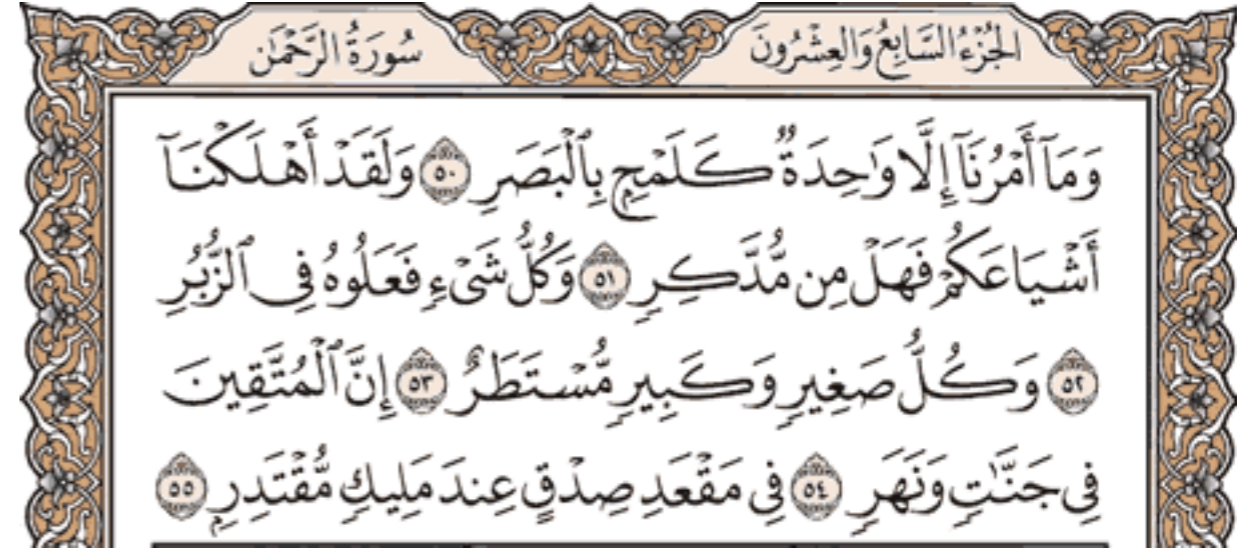 الجُزْءُ السَّابِعُ وَالعِشْرُونَ
سُورَةُ الرَّحْمَٰن
وَمَآ أَمْرُنَآ إِلَّا وَٰحِدَةٌ كَلَمْحٍۭ بِٱلْبَصَرِ ٥٠ وَلَقَدْ أَهْلَكْنَآ
أَشْيَاعَكُمْ فَهَلْ مِن مُّدَّكِرٍ ٥١ وَكُلُّ شَىْءٍ فَعَلُوهُ فِى ٱلزُّبُرِ
٥٢ وَكُلُّ صَغِيرٍ وَكَبِيرٍ مُّسْتَطَرٌ ٥٣ إِنَّ ٱلْمُتَّقِينَ
فِى جَنَّٰتٍ وَنَهَرٍ ٥٤ فِى مَقْعَدِ صِدْقٍ عِندَ مَلِيكٍ مُّقْتَدِرٍۭ ٥٥